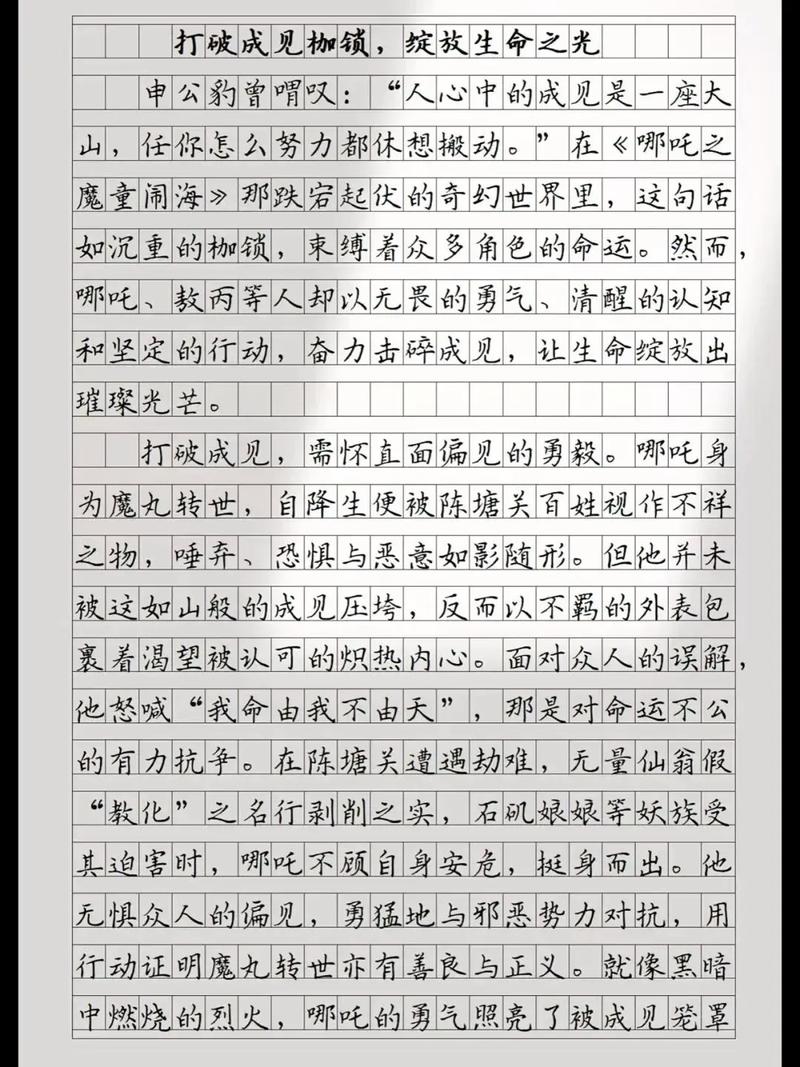 打破成见枷锁，绽放生命之光
申公豹曾喟叹：“人心中的成见是一座大
山，任你怎么努力都休想搬动。”在《哪吒之
魔童闹海》那跌宕起伏的奇幻世界里，这句话
如沉重的枷锁，束缚着众多角色的命运。然而，
哪吒、敖丙等人却以无畏的勇气、清醒的认知
和坚定的行动，奋力击碎成见，让生命绽放出
璀璨光芒。
打破成见，需怀直面偏见的勇毅。哪吒身
为魔丸转世，自降生便被陈塘关百姓视作不祥
之物，唾弃、恐惧与恶意如影随形。但他并未
被这如山般的成见压垮，反而以不羁的外表包
裹着渴望被认可的炽热内心。面对众人的误解，
他怒喊“我命由我不由天”，那是对命运不公
的有力抗争。在陈塘关遭遇劫难，无量仙翁假
“教化”之名行剥削之实，石矶娘娘等妖族受
其迫害时，哪吒不顾自身安危，挺身而出。他
无惧众人的偏见，勇猛地与邪恶势力对抗，用
行动证明魔丸转世亦有善良与正义。就像黑暗
中燃烧的烈火，哪吒的勇气照亮了被成见笼罩